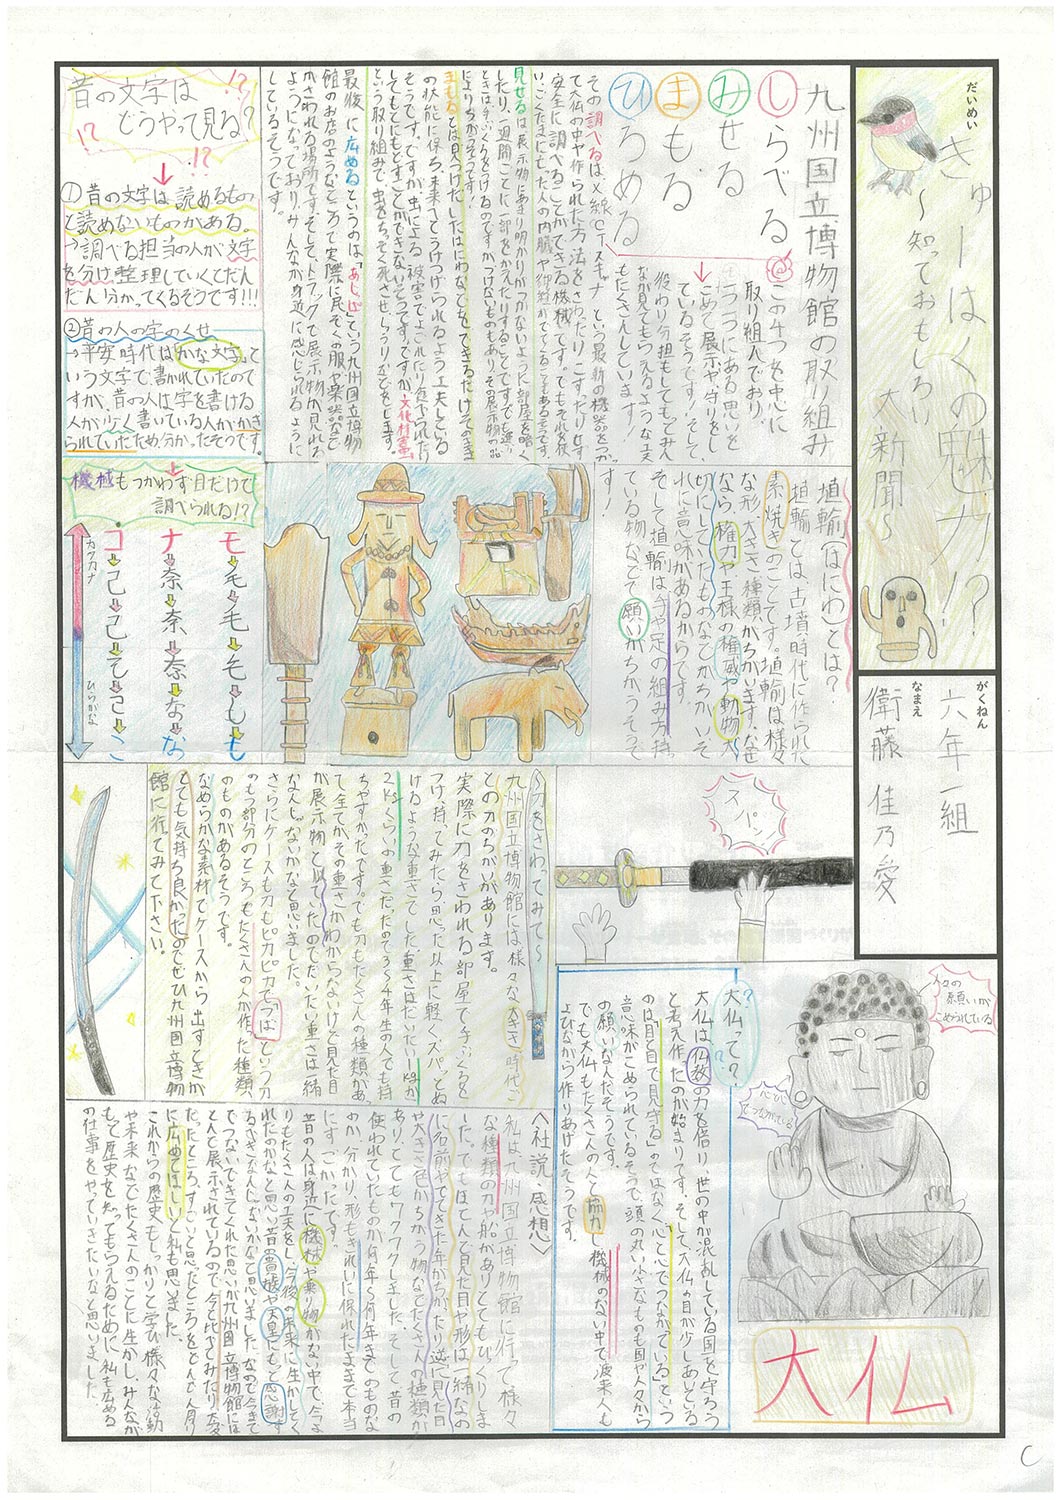 だいめい
きゅーはくの魅力!?
〜知っておもしろい大新聞〜
がくねん
六年一組
なまえ
衛藤 佳乃愛
九州国立博物館の取り組み
しらべる
みせる
まもる
ひろめる
この4つを中心に
取り組んでおり、
一つ一つにある思いを
こめて展示や、守りをし
ているそうです!そして
役わり分担もしてもってみん
なが見てもらえるような工夫
もたくさんしています!
その調べるは、X線CTスキャナーという最新の機器をつか
って大仏の中や作られた方法をさわったり、こすったりせず
安全に調べることができる機械です。でもそれを使
見せるは展示物にあまり明かりがつかないように部屋を暗く
したり、一週間ごとに一部をかえたりすることです。でも運ぶ
まもるとは見つけたしたはにわなどをできるだけそのまま
の状態に保ち、未来へとうけつげられるよう工夫している
そうです。ですが虫による被害でよごれたり食べられたり
してもとにもどすことができないそうです。ですが、文化財害虫
という取り組みで虫をちっそく死させしょうりなどをします。
最後に広めるというのは、「あじっぱ」という九州国立博物
館のお店のようなところで実際に民ぞくの服や楽器など
がさわれる場所です。そして、トラックで展示物が見れる
ようになっており、みんなが身近に感じられるように
しているそうです。
昔の文字は
どうやって見る?
!?
!?
!?
①昔の文字は読めるもの
と読めないものがある。
→調べる担当の人が文字
を分け整理していくとだん
だん分かってくるそうです!!!
②昔の人の字のくせ
→平安時代はかな文字っ
ていう文字で書かれていたので
すが、昔の人は字を書ける
人が少人書いている人がかぎ
られていたため分かったそうです。
機械もつかわず目だけで
調べられる!?
カタカナ
ひらがな
モ
も
ナ
奈
奈
奈
な
な
コ
己
己
こ
埴輪(はにわ)とは?
埴輪とは、古墳時代に作られた
素焼きのことです。埴輪は様々
な形、大きさ、種類がちがいます。なぜ
なら、権力や王様の権威や動物、大
切にしていたものなどがかかれ、いそ
れに意味があるからです。
そして埴輪は手や足の組み方、持
ている物などで願いがちがうそうで
す!
スパン!
〜刀をさわってみて〜
九州国立博物館には様々な大きさ、時代ご
との刀のちがいがあります。
実際に刀をさわれる部屋で手ぶくろを
つけ、持ってみたら思った以上に軽く、ズパッとぬ
けるような重さでした。重さはだいたい1kgか
2kgくらいの重さだったので3〜4年生の人でも持
ちやすかったです。でも刀もたくさんの種類があっ
て全てがその重さかわからないけど見た目
が展示物と似ていたのでだいたい重さは一緒
なんじゃないかなと思いました。
さらにケースも刀もピカピカで「つば」という刀
のもつ部分のところもたくさんの人が作った種類
のものがあるそうです。
なめらかな素材でケースから出すときが
とても気持ち良かったのでぜひ九州国立博物
館に行ってみて下さい。
大仏って??
大仏は仏教の力を借り、世の中が混乱している国を守ろう
と考え作ったのが始まりです。そして大仏の目が少しあいてる
のは「目と目で見守る」のではなく「心と心でつながっている」という
意味がこめられているそうで、頭の丸い小さなものも国や人々から
の願いなんだそうです。
でも大仏もたくさんの人々と協力し機械のない中で渡来人も
よびながら作りあげたそうです。
人々の
願いが
こめられている
心と心で
つながっている
大仏
〈社説・感想〉
私は、九州国立博物館に行って様々
な種類の刀や船がありとてもびっくりしま
した。でもほとんど見た目や形は一緒なの
に名前やできた年がちがったり逆に見た目
や大きさ、色がちがう物などたくさんの種類が
ありとてもワクワクしました。そして昔の
使われていたものが何年〜何年までのものな
のか分かり、形もきれいに保たれたままで本当
にすごかったです。
昔の人は身近に機械や乗り物がない中で、今よ
りもたくさんの工夫をし、今後の未来に生かしてく
れたのかなと思い昔の貴族や天皇にも、感謝す
るべきなんじゃないかなと思いました。なので今まで
つないできてくれた思いが九州国立博物館には
とんど展示されているので今と比べてみたり、変
わったところ、すごいと思ったところをどんどん周り
に広めてほしいと私も思いました。
これからの歴史もしっかりと学び様々な活動
や未来などでたくさんのことに生かし、みんなが
もっと歴史を知ってもらえるために私も広める
の仕事をやっていきたいなと思いました。
C